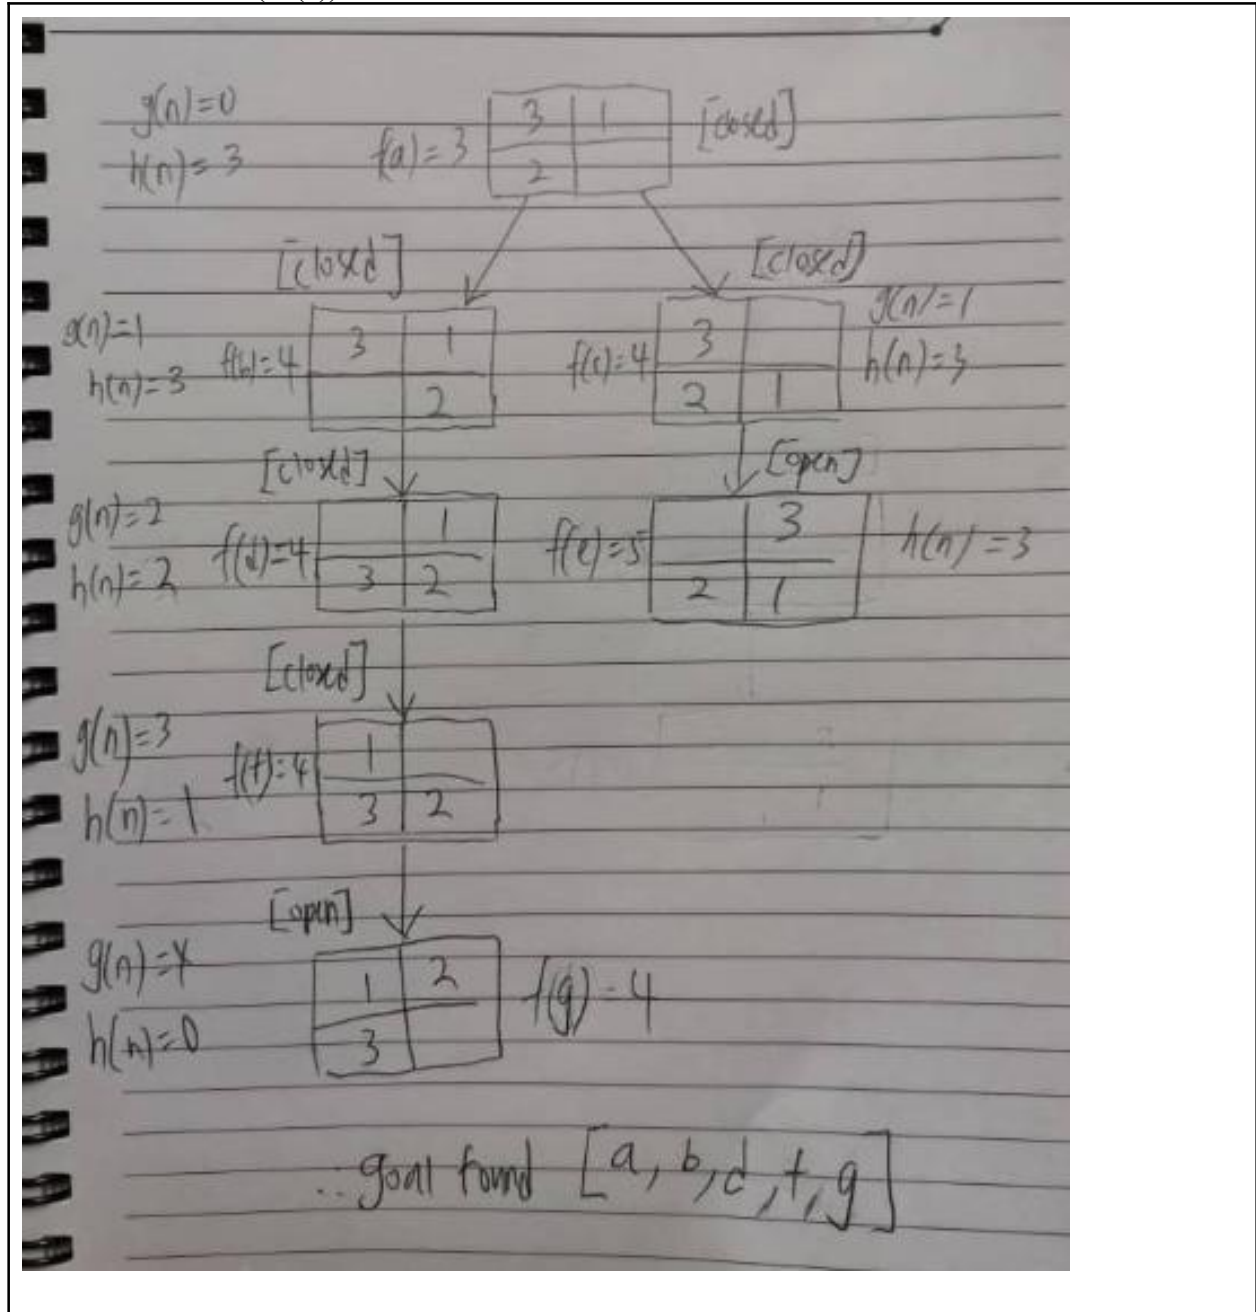 g(n)=0
h(n)=3
f(a)=3
3 1
2
[closed]
[closed]
[closed]
g(n)=1
h(n)=3
f(b)=4
3 1
2
f(c)=4
3
2 1
g(n)=1
h(n)=3
[closed]
[open]
g(n)=2
h(n)=2
f(d)=4
1
3 2
f(e)=5
3
2 1
h(n)=3
[closed]
g(n)=3
h(n)=1
f(f)=4
1
3 2
[open]
g(n)=4
h(n)=0
1 2
3
f(g)=4
∴ goal found [a, b, d, f, g]